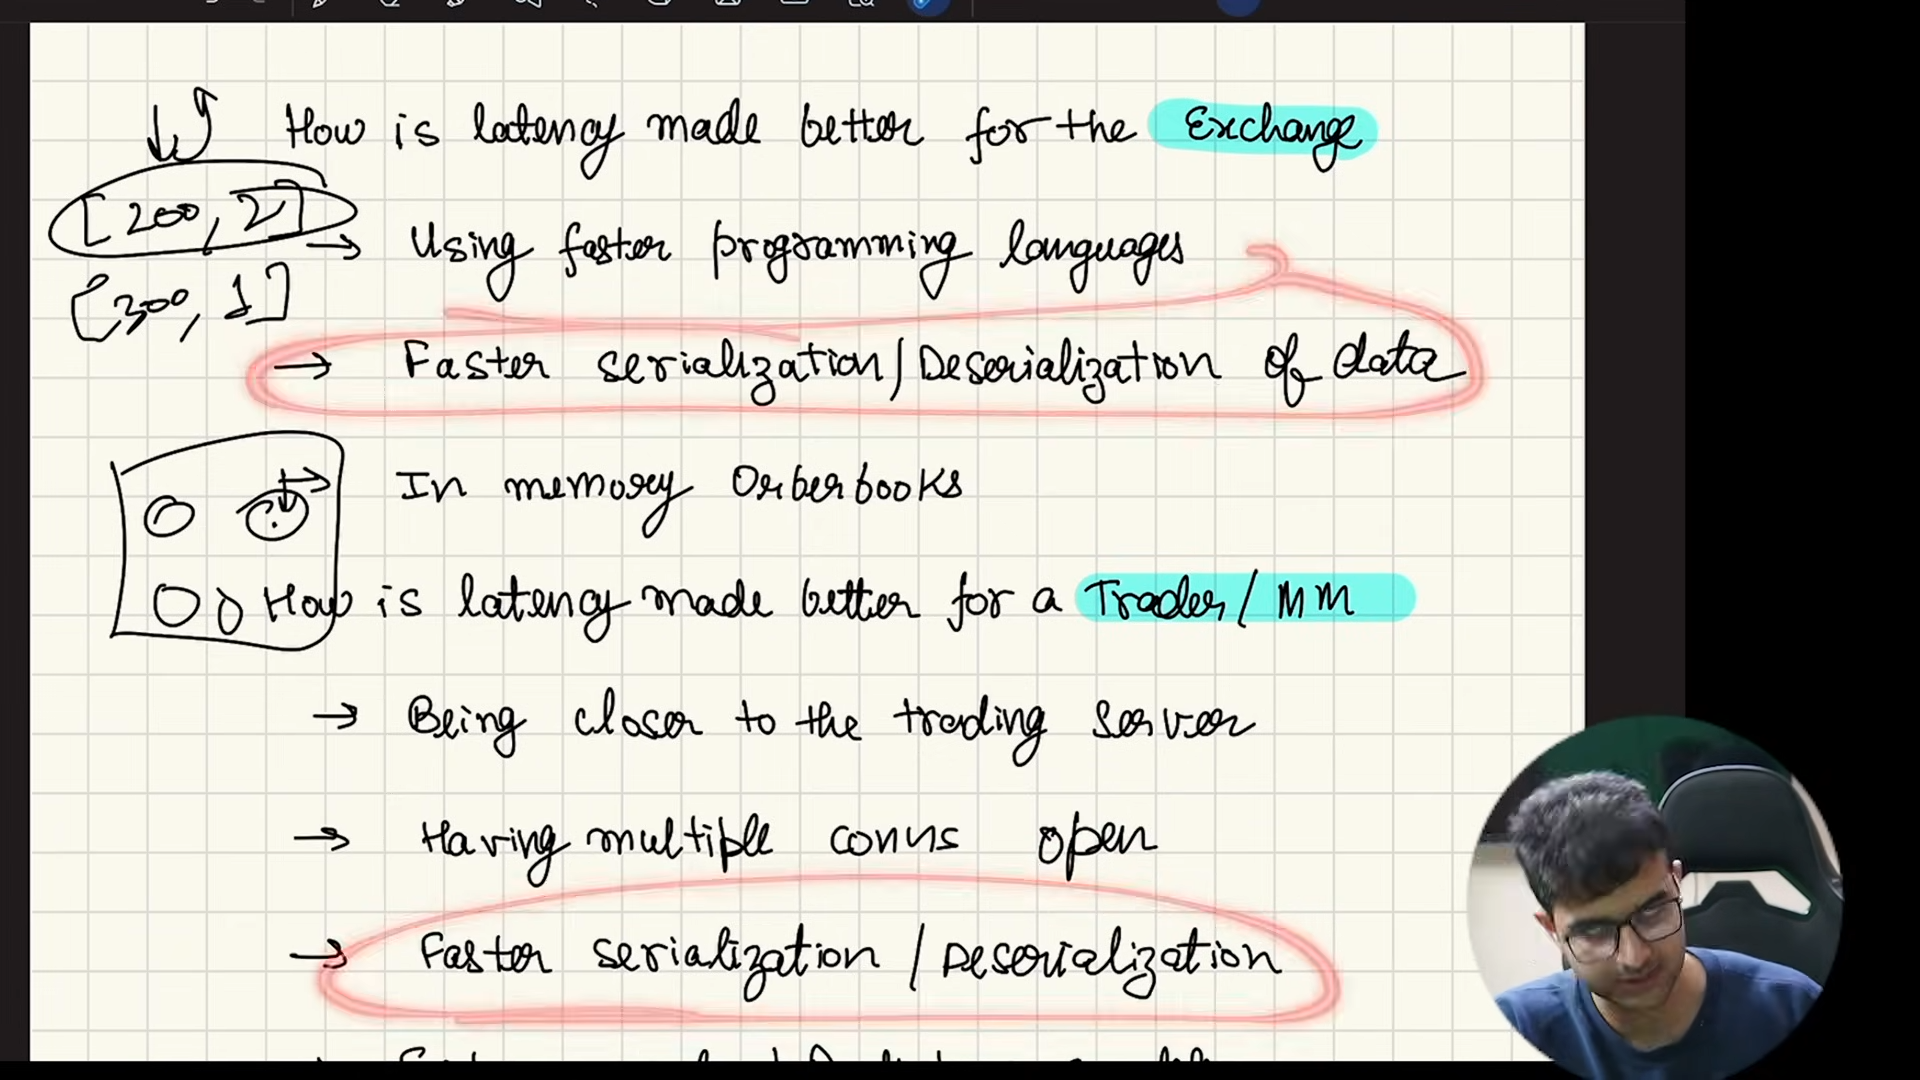 How is latency made better for the Exchange
[200, 2]
→ Using faster programming languages
[300, 1]
→ Faster serialization/Deserialization of data
→ In memory Orberbooks
How is latency made better for a Trader/MM
→ Being closer to the trading server
→ Having multiple conns open
→ Faster serialization / Deserialization